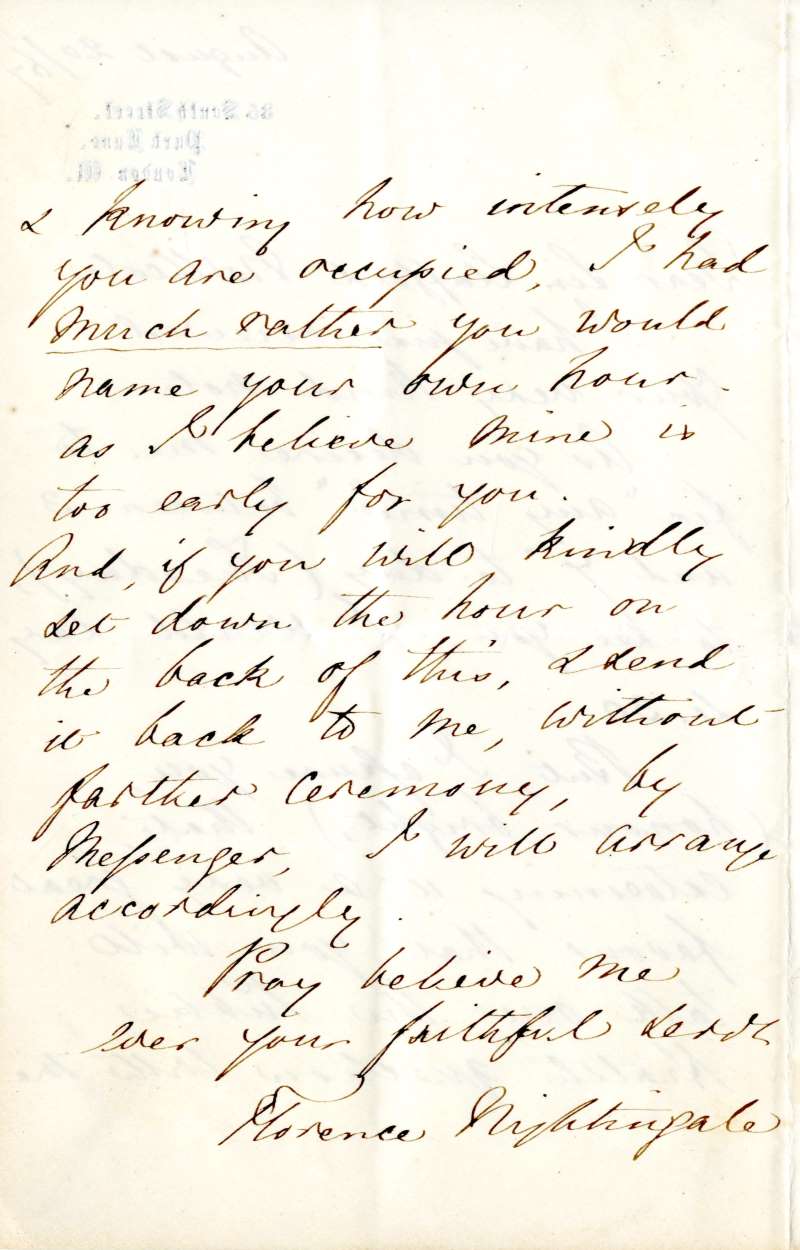 & knowing how intensely
you are occupied, I had
much rather you would
name your own hour -
as I believe mine is
too early for you.
And, if you will kindly
set down the hour on
the back of this, & send
it back to me, without
farther ceremony, by
Messenger, I will arrange
accordingly.
Pray believe me
ever your faithful servt
Florence Nightingale